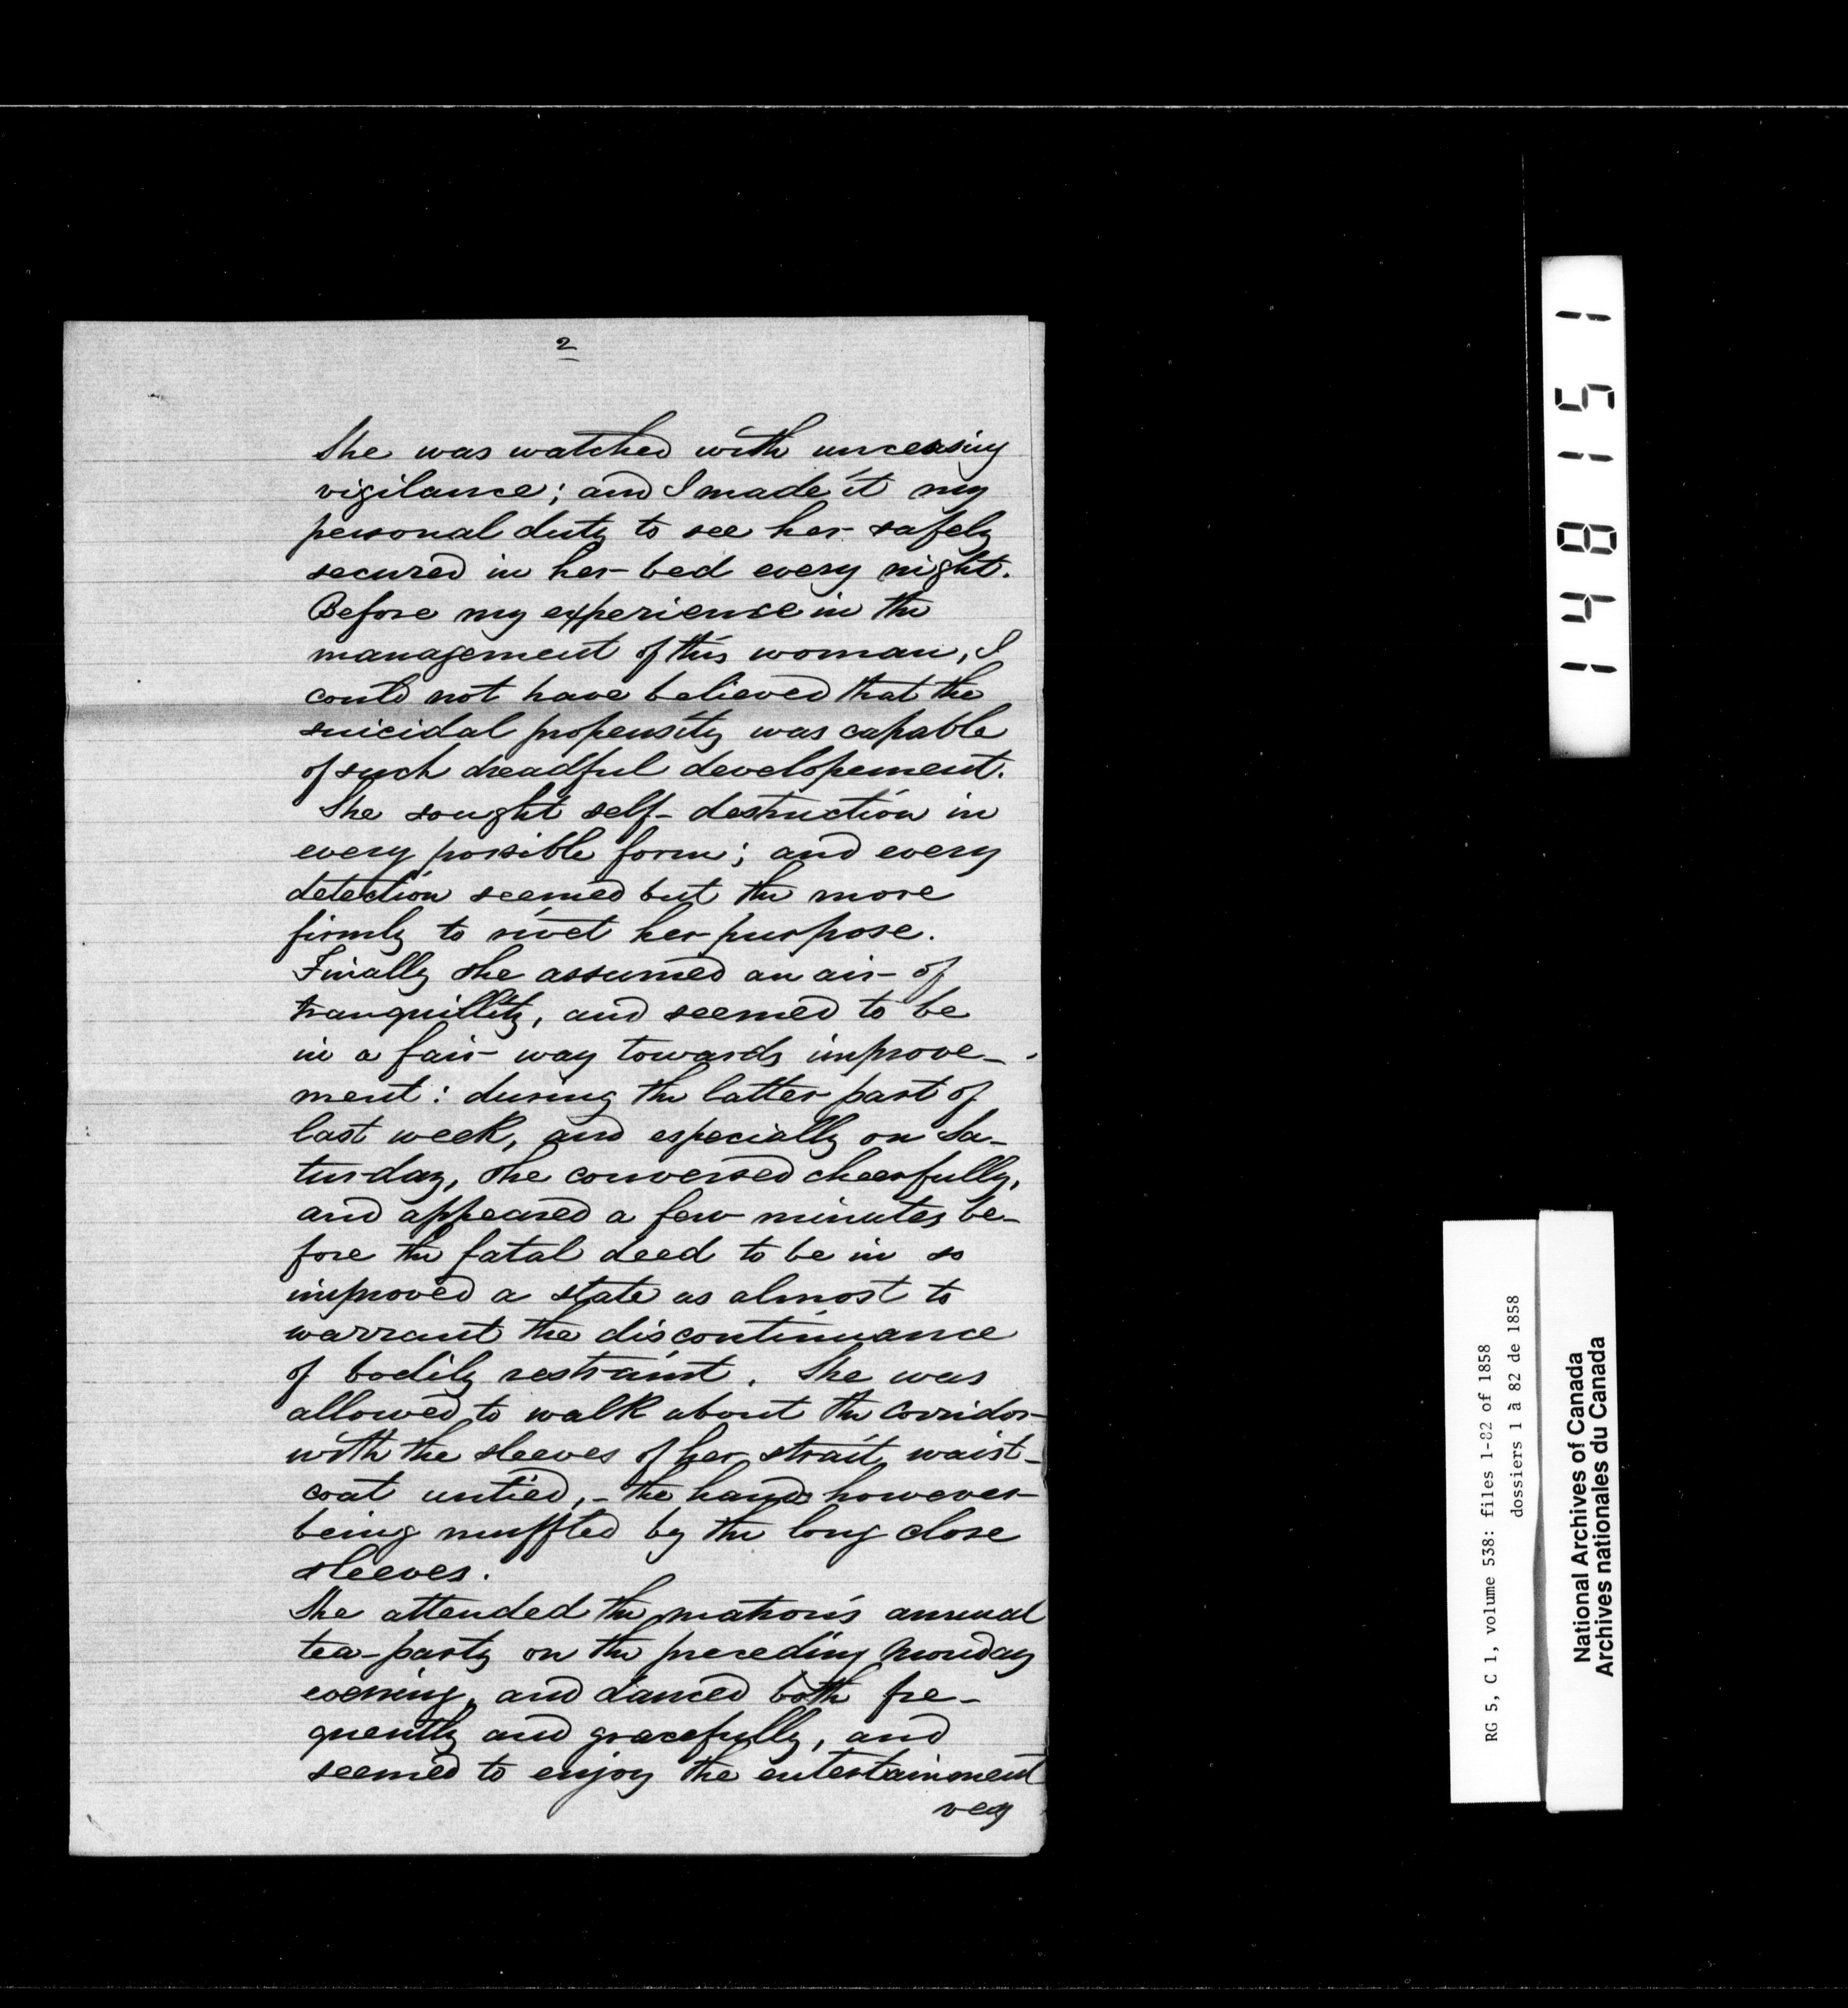 2
She was watched with unceasing
vigilance; and I made it my
personal duty to see her safely
secured in her bed every night.
Before my experience in the
management of this woman, I
could not have believed that the
suicidal propensity was capable
of such dreadful developement.
She sought self-destruction in
every possible form; and every
detection seemed but the more
firmly to rivet her purpose.
Finally she assumed an air of
tranquillity, and seemed to be
in a fair way towards improve-
ment: during the latter part of
last week, and especially on Sa-
turday, she conversed cheerfully,
and appeared a few minutes be-
fore the fatal deed to be in so
improved a state as almost to
warrant the discontinuance
of bodily restraint. She was
allowed to walk about the corridor
with the sleeves of her strait waist-
coat untied,- the hands however
being muffled by the long close
sleeves.
She attended the matron's annual
tea-party on the preceding Monday
evening, and danced both fre-
quently and gracefully, and
seemed to enjoy the entertainment
very
148151
RG 5, C 1, volume 538: files 1-82 of 1858
dossiers 1 à 82 de 1858
National Archives of Canada
Archives nationales du Canada